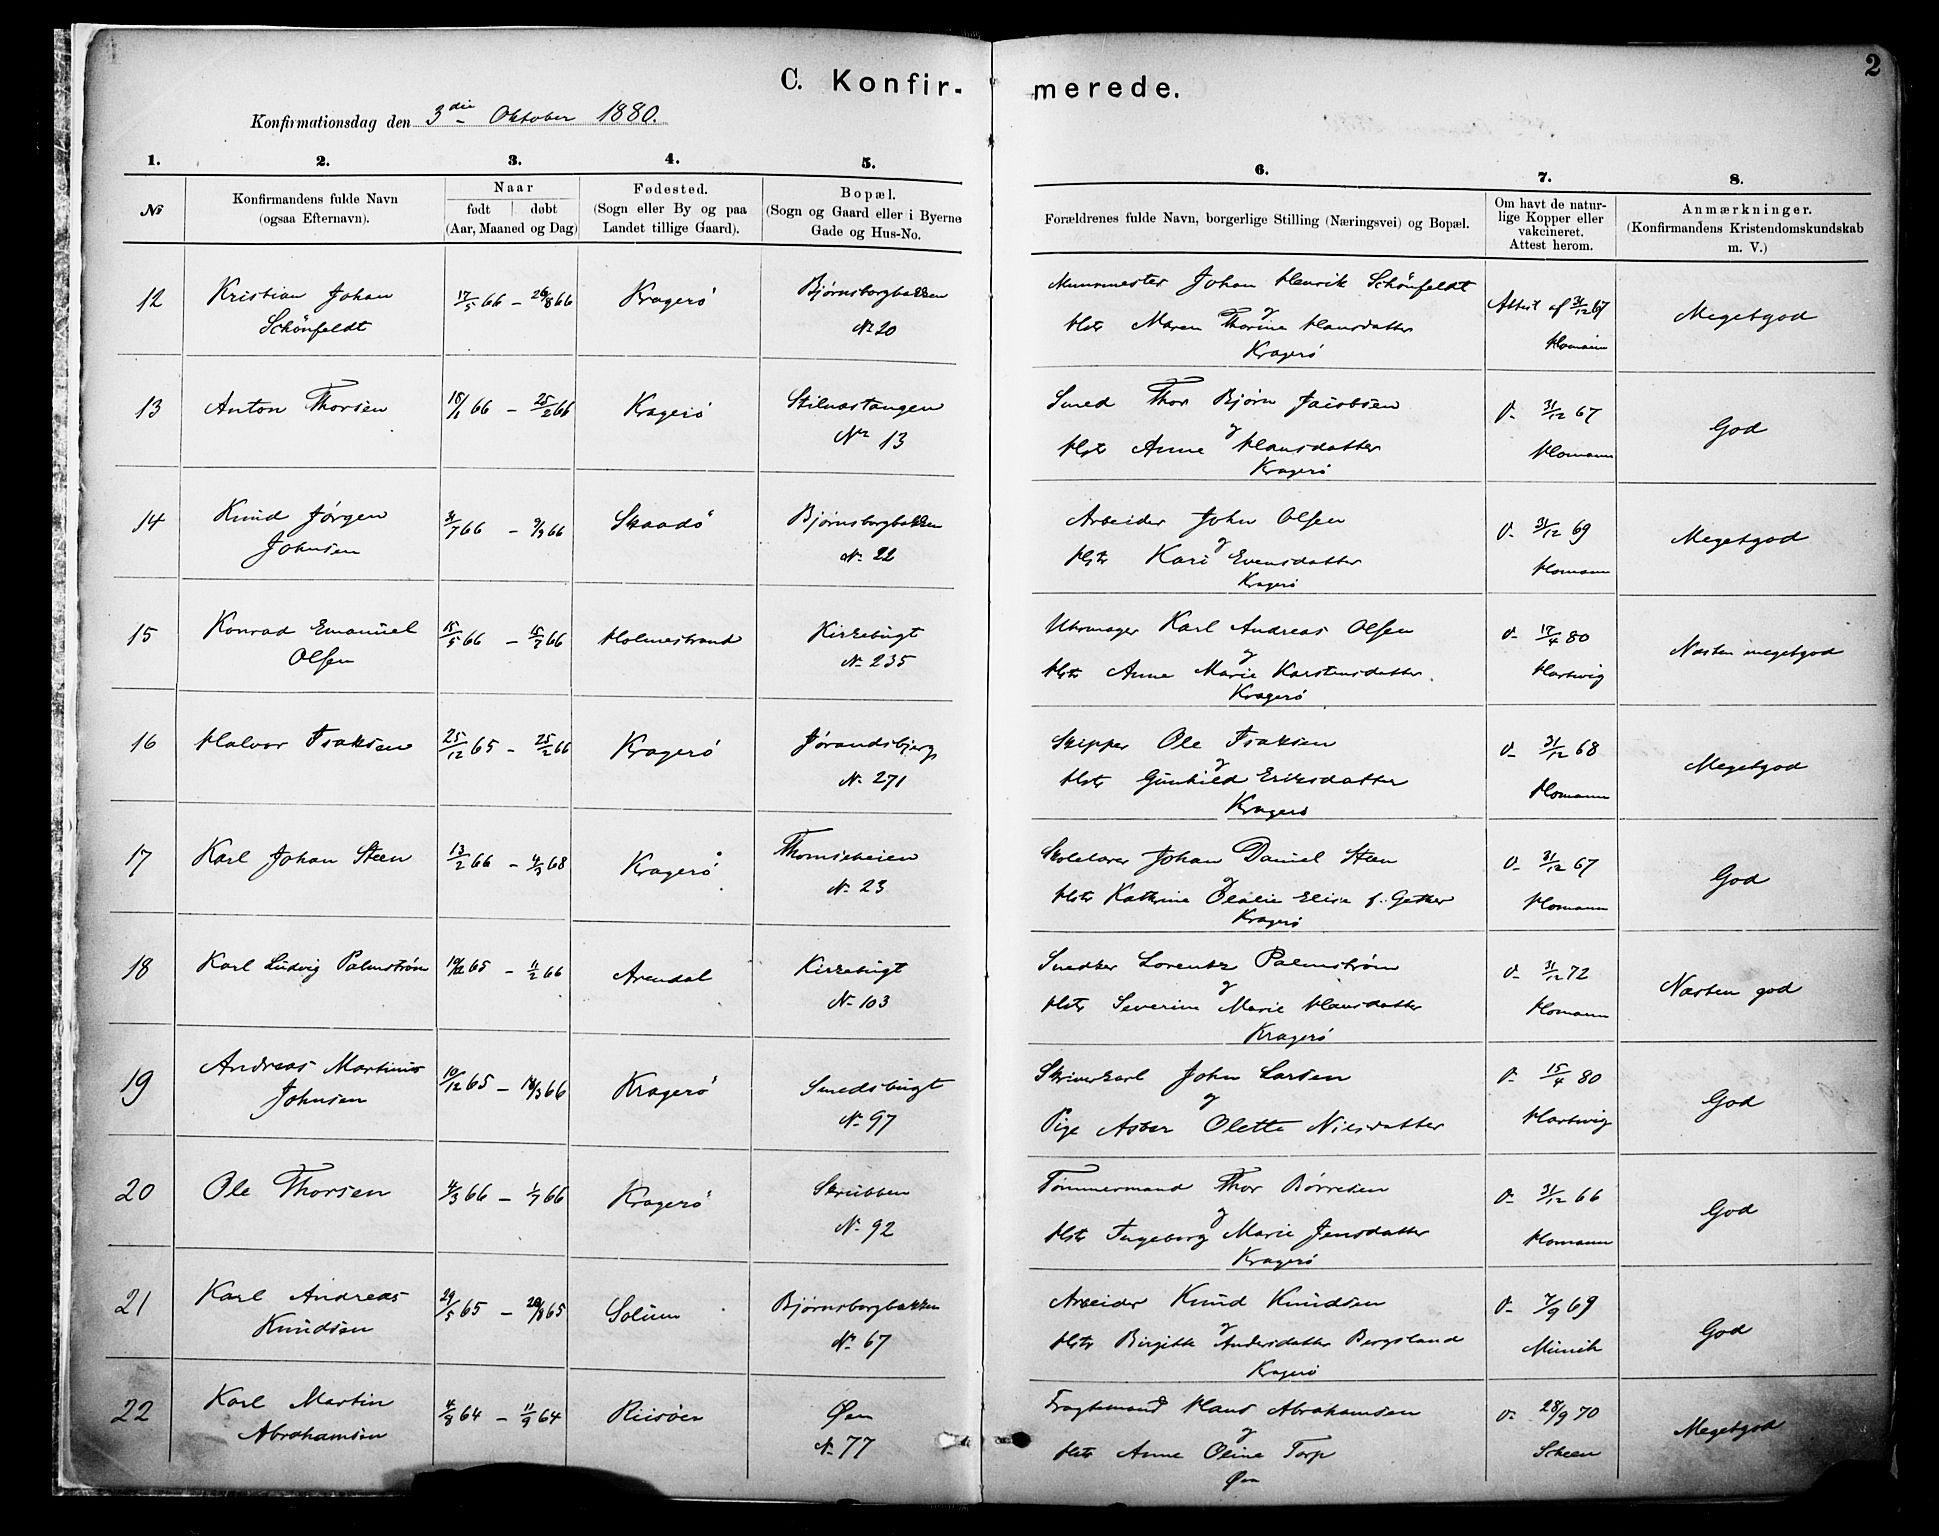 2
C. Konfirmerede.
Konfirmationsdag den 3die Oktober 1880.
1. 2. 3. 4. 5. 6. 7. 8.
№
Konfirmandens fulde Navn
(ogsaa Efternavn).
Naar
født | døbt
(Aar, Maaned og Dag)
Fødested.
(Sogn eller By og paa
Landet tillige Gaard).
Bopæl.
(Sogn og Gaard eller i Byerne
Gade og Hus-No.
Forældrenes fulde Navn, borgerlige Stilling (Næringsvei) og Bopæl.
Om havt de natur-
lige Kopper eller
vakcineret.
Attest herom.
Anmærkninger.
(Konfirmandens Kristendomskundskab
m. V.)
12 Kristian Johan 17/5 66 – 26/8 66 Kragerö Bjørnsborgbakken Murmester Johan Henrik Schönfeldt Attest af 31/12 67 Megetgod
Schönfeldt № 20 og Hstr Maren Thorine Hansdatter Homann
Kragerö
13 Anton Thorsen 18/1 66 – 25/2 66 Kragerö Stilnestangen Smed Thor Bjørn Jacobsen D– 31/12 67 God
Nr 13 og Hstr Anne Hansdatter Homann
Kragerö
14 Knud Jørgen 31/7 66 – 9/9 66 Skaadö Bjørnsborgbakken Arbeider John Olsen D– 31/12 69 Megetgod
Johnsen N. 22 og Hstr Kari Evensdatter Homann
Kragerö
15 Konrad Emanuel 15/5 66 – 15/7 66 Holmestrand Kirkebugt Uhrmager Karl Andreas Olsen D– 17/4 80 Næsten megetgod
Olsen N. 235 og Hstr Anne Marie Karstensdatter Hartwig
Kragerö
16 Halvor Isaksen 25/12 65 – 25/2 66 Kragerö Jørandsbjerg Skipper Ole Isaksen D– 31/12 68 Megetgod
N. 271 og Hstr Gunhild Eriksdatter Homann
Kragerö
17 Karl Johan Steen 13/2 66 – 4/3 68 Kragerö Thomseheien Skolelærer Johan Daniel Steen D– 31/12 67 God
N. 23 og Hstr Kathrine Elise f. Homann
Kragerö
18 Karl Ludvig Palmstrøm 19/12 65 – 11/2 66 Arendal Kirkebugt Snedker Lorentz Palmstrøm D– 31/12 72 Næsten god
N. 103 og Hstr Severine Marie Hansdatter Homann
Kragerö
19 Andreas Martinus 10/12 65 – 18/3 66 Kragerö Smedsbugt Skriverkarl John Larsen D– 15/4 80 God
Johnsen N. 97 og Pige Olette Nilsdatter Hartwig
20 Ole Thorsen 4/3 66 – 1/7 66 Kragerö Skrubben Tømmermand Thor Børresen D– 31/12 66 God
N. 92 og Hstr Ingeborg Marie Jensdatter Homann
Kragerö
21 Karl Andreas 29/5 65 – 20/8 65 Solum Bjørnsborgbakken Arbeider Knud Knudsen D– 7/9 69 God
Knudsen Nr 67 og Hstr Birgitte Andersdatter Bergsland Münik
Kragerö
22 Karl Martin 4/8 64 – 11/9 64 Riisöer Øen Fragtemand Hans Abrahamsen D– 28/9 70 Megetgod
Abrahamsen N. 77 og Hstr Anne Oline Torp Scheen
Øen